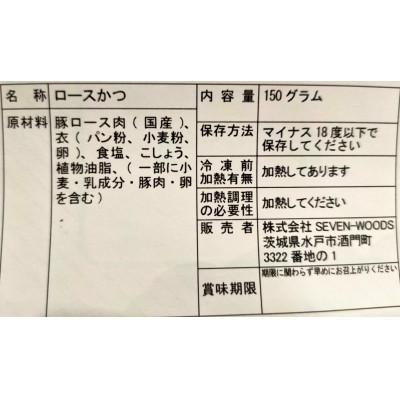 名 称 ロースかつ
原材料 豚ロース肉(国産)、
衣(パン粉、小麦粉、
卵)、食塩、こしょう、
植物油脂、(一部に小
麦・乳成分・豚肉・卵
を含む)
内 容 量 150グラム
保存方法 マイナス18度以下で
保存してください
冷 凍 前
加熱有無 加熱してあります
加熱調理
の必要性 加熱してください
販 売 者 株式会社 SEVEN-WOODS
茨城県水戸市酒門町
3322 番地の1
賞味期限 期限に関わらず早めにお召上がりください